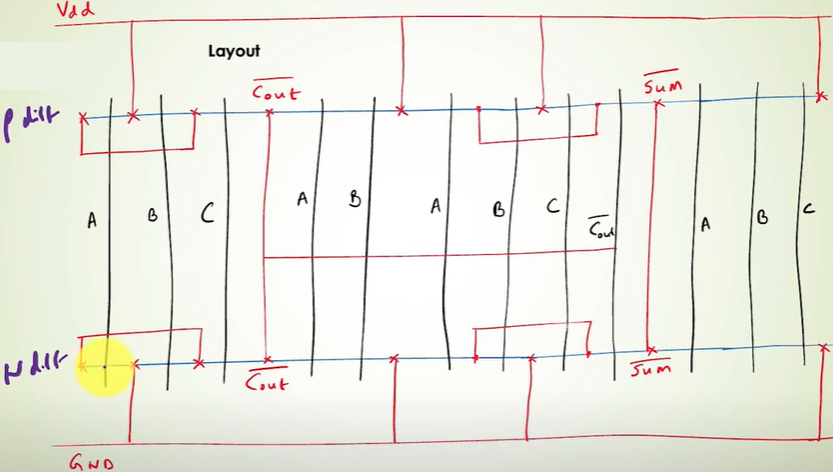 Vdd
Layout
C̅o̅u̅t̅
S̅u̅m̅
P diff
A B C A B A B C C̅o̅u̅t̅ A B C
N diff
C̅o̅u̅t̅
S̅u̅m̅
GND